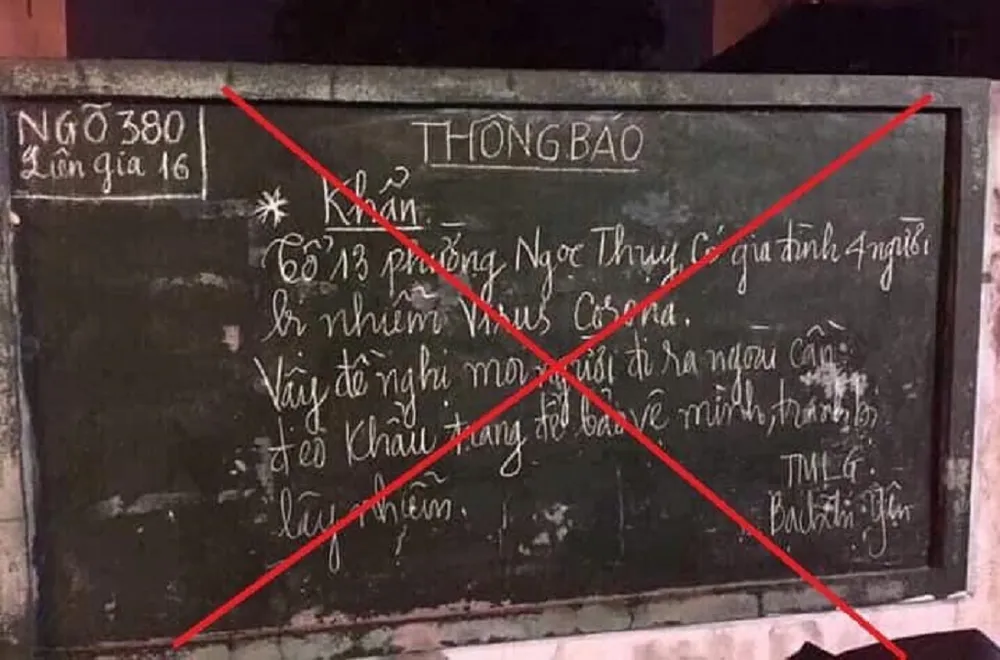 NGÕ 380
Liên gia 16
THÔNG BÁO
* Khẩn.
Tổ 13 phường Ngọc Thụy, Có gia đình 4 người
bị nhiễm Virus Corona.
Vậy đề nghị mọi người đi ra ngoài cần
đeo khẩu trang để bảo vệ mình, tránh bị
lây nhiễm.
TMLG.
Bạch Thị Yến